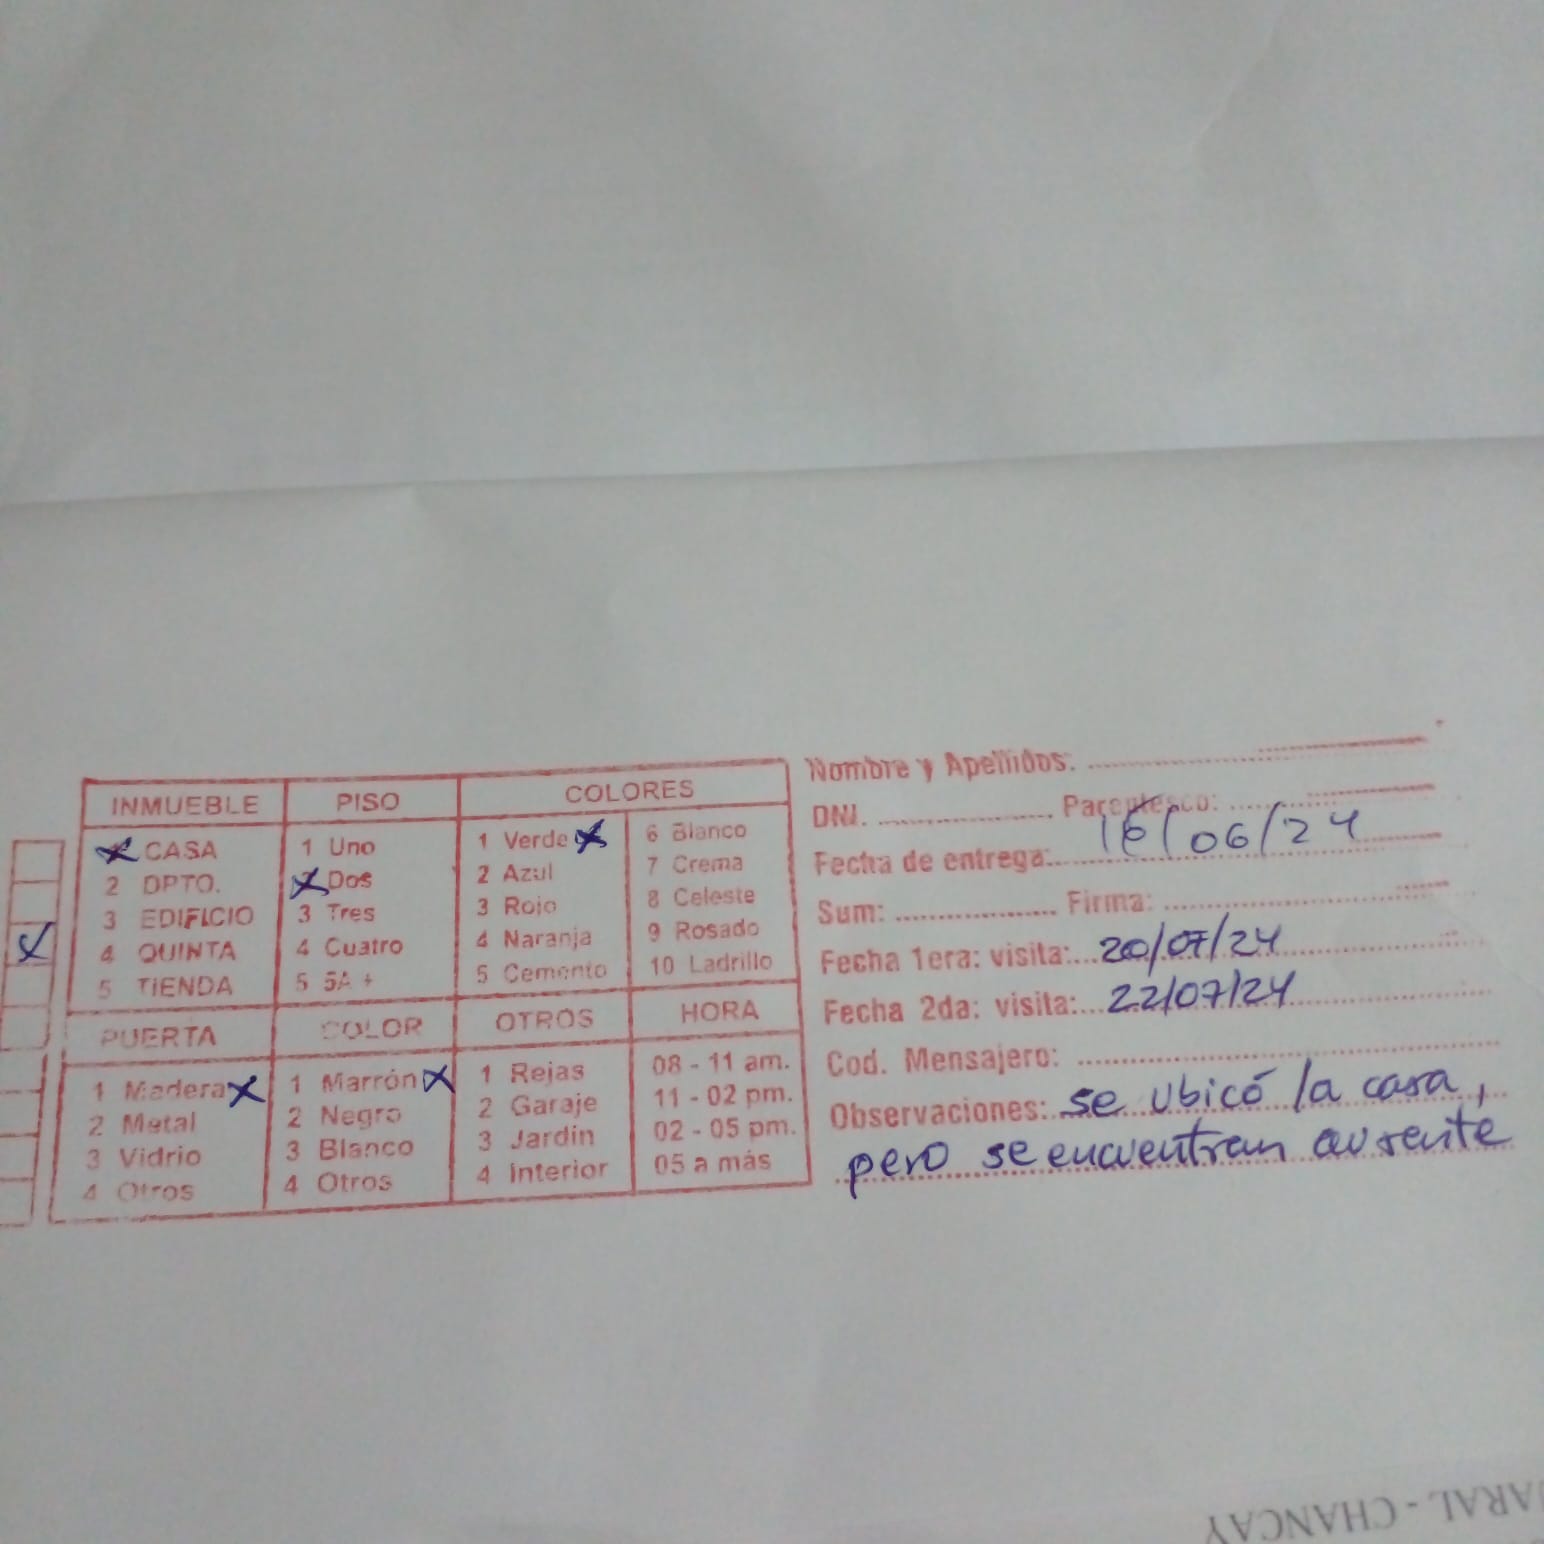 INMUEBLE PISO COLORES
CASA 1 Uno 1 Verde 6 Blanco
2 DPTO. Dos 2 Azul 7 Crema
3 EDIFICIO 3 Tres 3 Rojo 8 Celeste
4 QUINTA 4 Cuatro 4 Naranja 9 Rosado
5 TIENDA 5 5A + 5 Cemento 10 Ladrillo
PUERTA COLOR OTROS HORA
1 Madera 1 Marrón 1 Rejas 08 - 11 am.
2 Metal 2 Negro 2 Garaje 11 - 02 pm.
3 Vidrio 3 Blanco 3 Jardín 02 - 05 pm.
4 Otros 4 Otros 4 Interior 05 a más
Nombre y Apellidos:
DNI. Parentesco:
Fecha de entrega: 16/06/24
Sum: Firma:
Fecha 1era: visita: 20/07/24
Fecha 2da: visita: 22/07/24
Cod. Mensajero:
Observaciones: se ubicó la casa,
pero se encuentran ausente
ARAL - CHANCAY